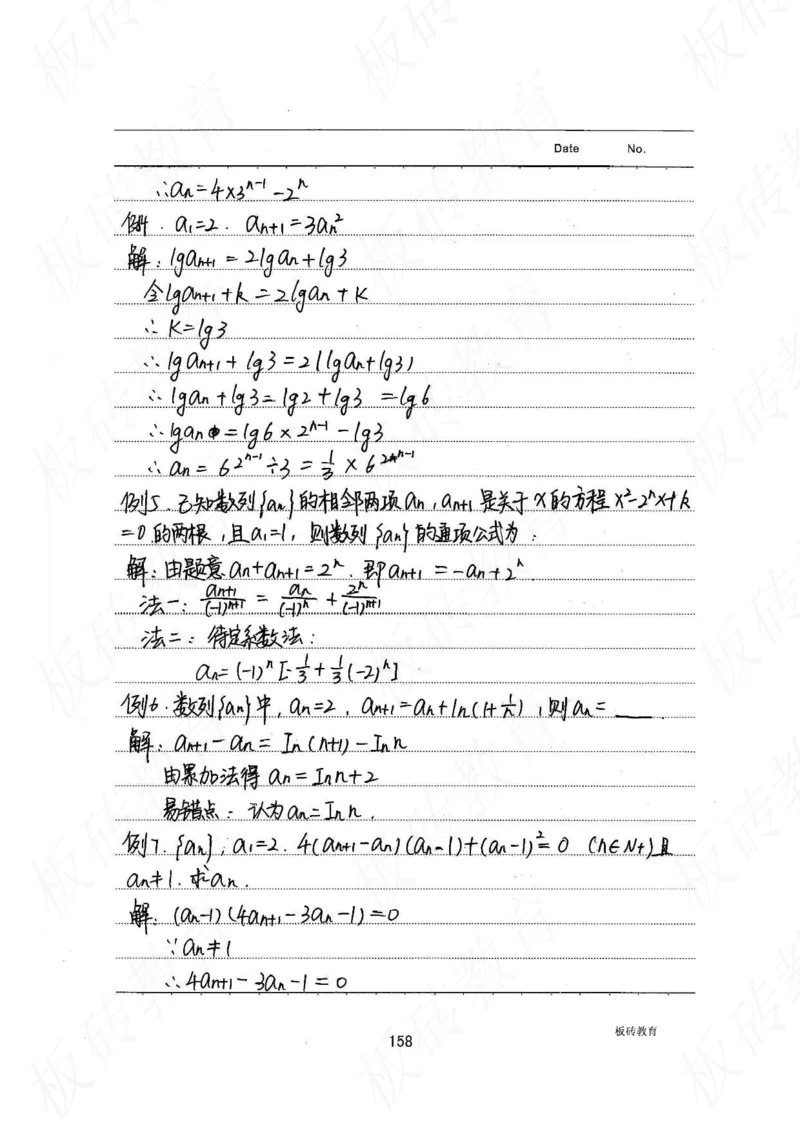 Date No.
∴an=4×3^(n-1)-2^n
例4. a1=2. a(n+1)=3an^2
解: lga(n+1)=2lgan+lg3
令lga(n+1)+k=2lgan+k
∴k=lg3
∴lga(n+1)+lg3=2(lgan+lg3)
∴lgan+lg3=lg2+lg3=lg6
∴lgan=lg6×2^(n-1)-lg3
∴an=6^(2^(n-1))÷3=1/3×6^(2^(n-1))
例5. 已知数列{an}的相邻两项an,a(n+1)是关于x的方程x^2-2^nx+k
=0的两根,且a1=1,则数列{an}的通项公式为:
解:由题意an+a(n+1)=2^n.即a(n+1)=-an+2^n.
法一: a(n+1)/(-1)^(n+1)=an/(-1)^n+2^n/(-1)^(n+1)
法二:待定系数法:
an=(-1)^n[-1/3+1/3(-2)^n]
例6.数列{an}中,an=2,a(n+1)=an+ln(1+1/n),则an=___.
解: a(n+1)-an=In(n+1)-Inn
由累加法得an=Inn+2
易错点:认为an=Inn.
例7.{an},a1=2.4(a(n+1)-an)(an-1)+(an-1)^2=0 (n∈N+)且
an≠1.求an.
解:(an-1)(4a(n+1)-3an-1)=0
∵an≠1
∴4a(n+1)-3an-1=0
158
板砖教育